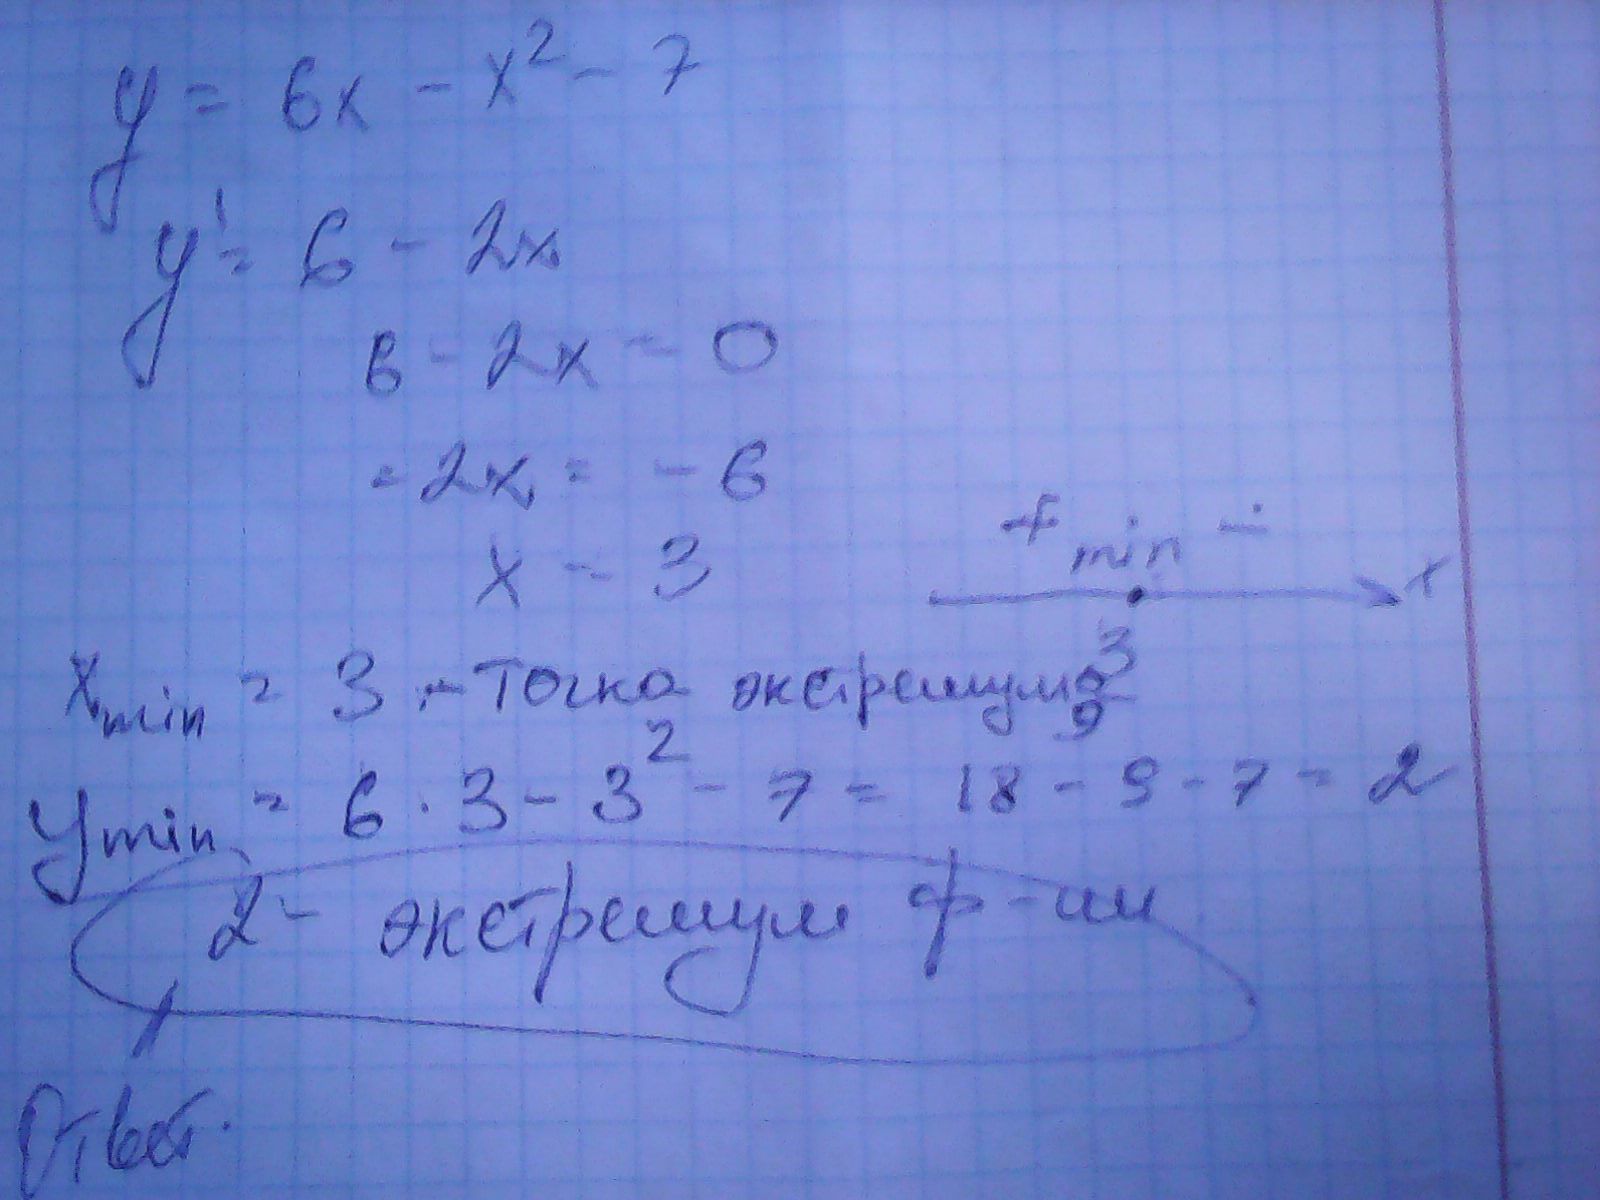 y = 6x - x² - 7
y' = 6 - 2x
6 - 2x = 0
-2x = -6
x = 3
+ min -
x
3
x min = 3 - точка экстремума
y min = 6 · 3 - 3² - 7 = 18 - 9 - 7 = 2
2 - экстремум ф-ии
Ответ.